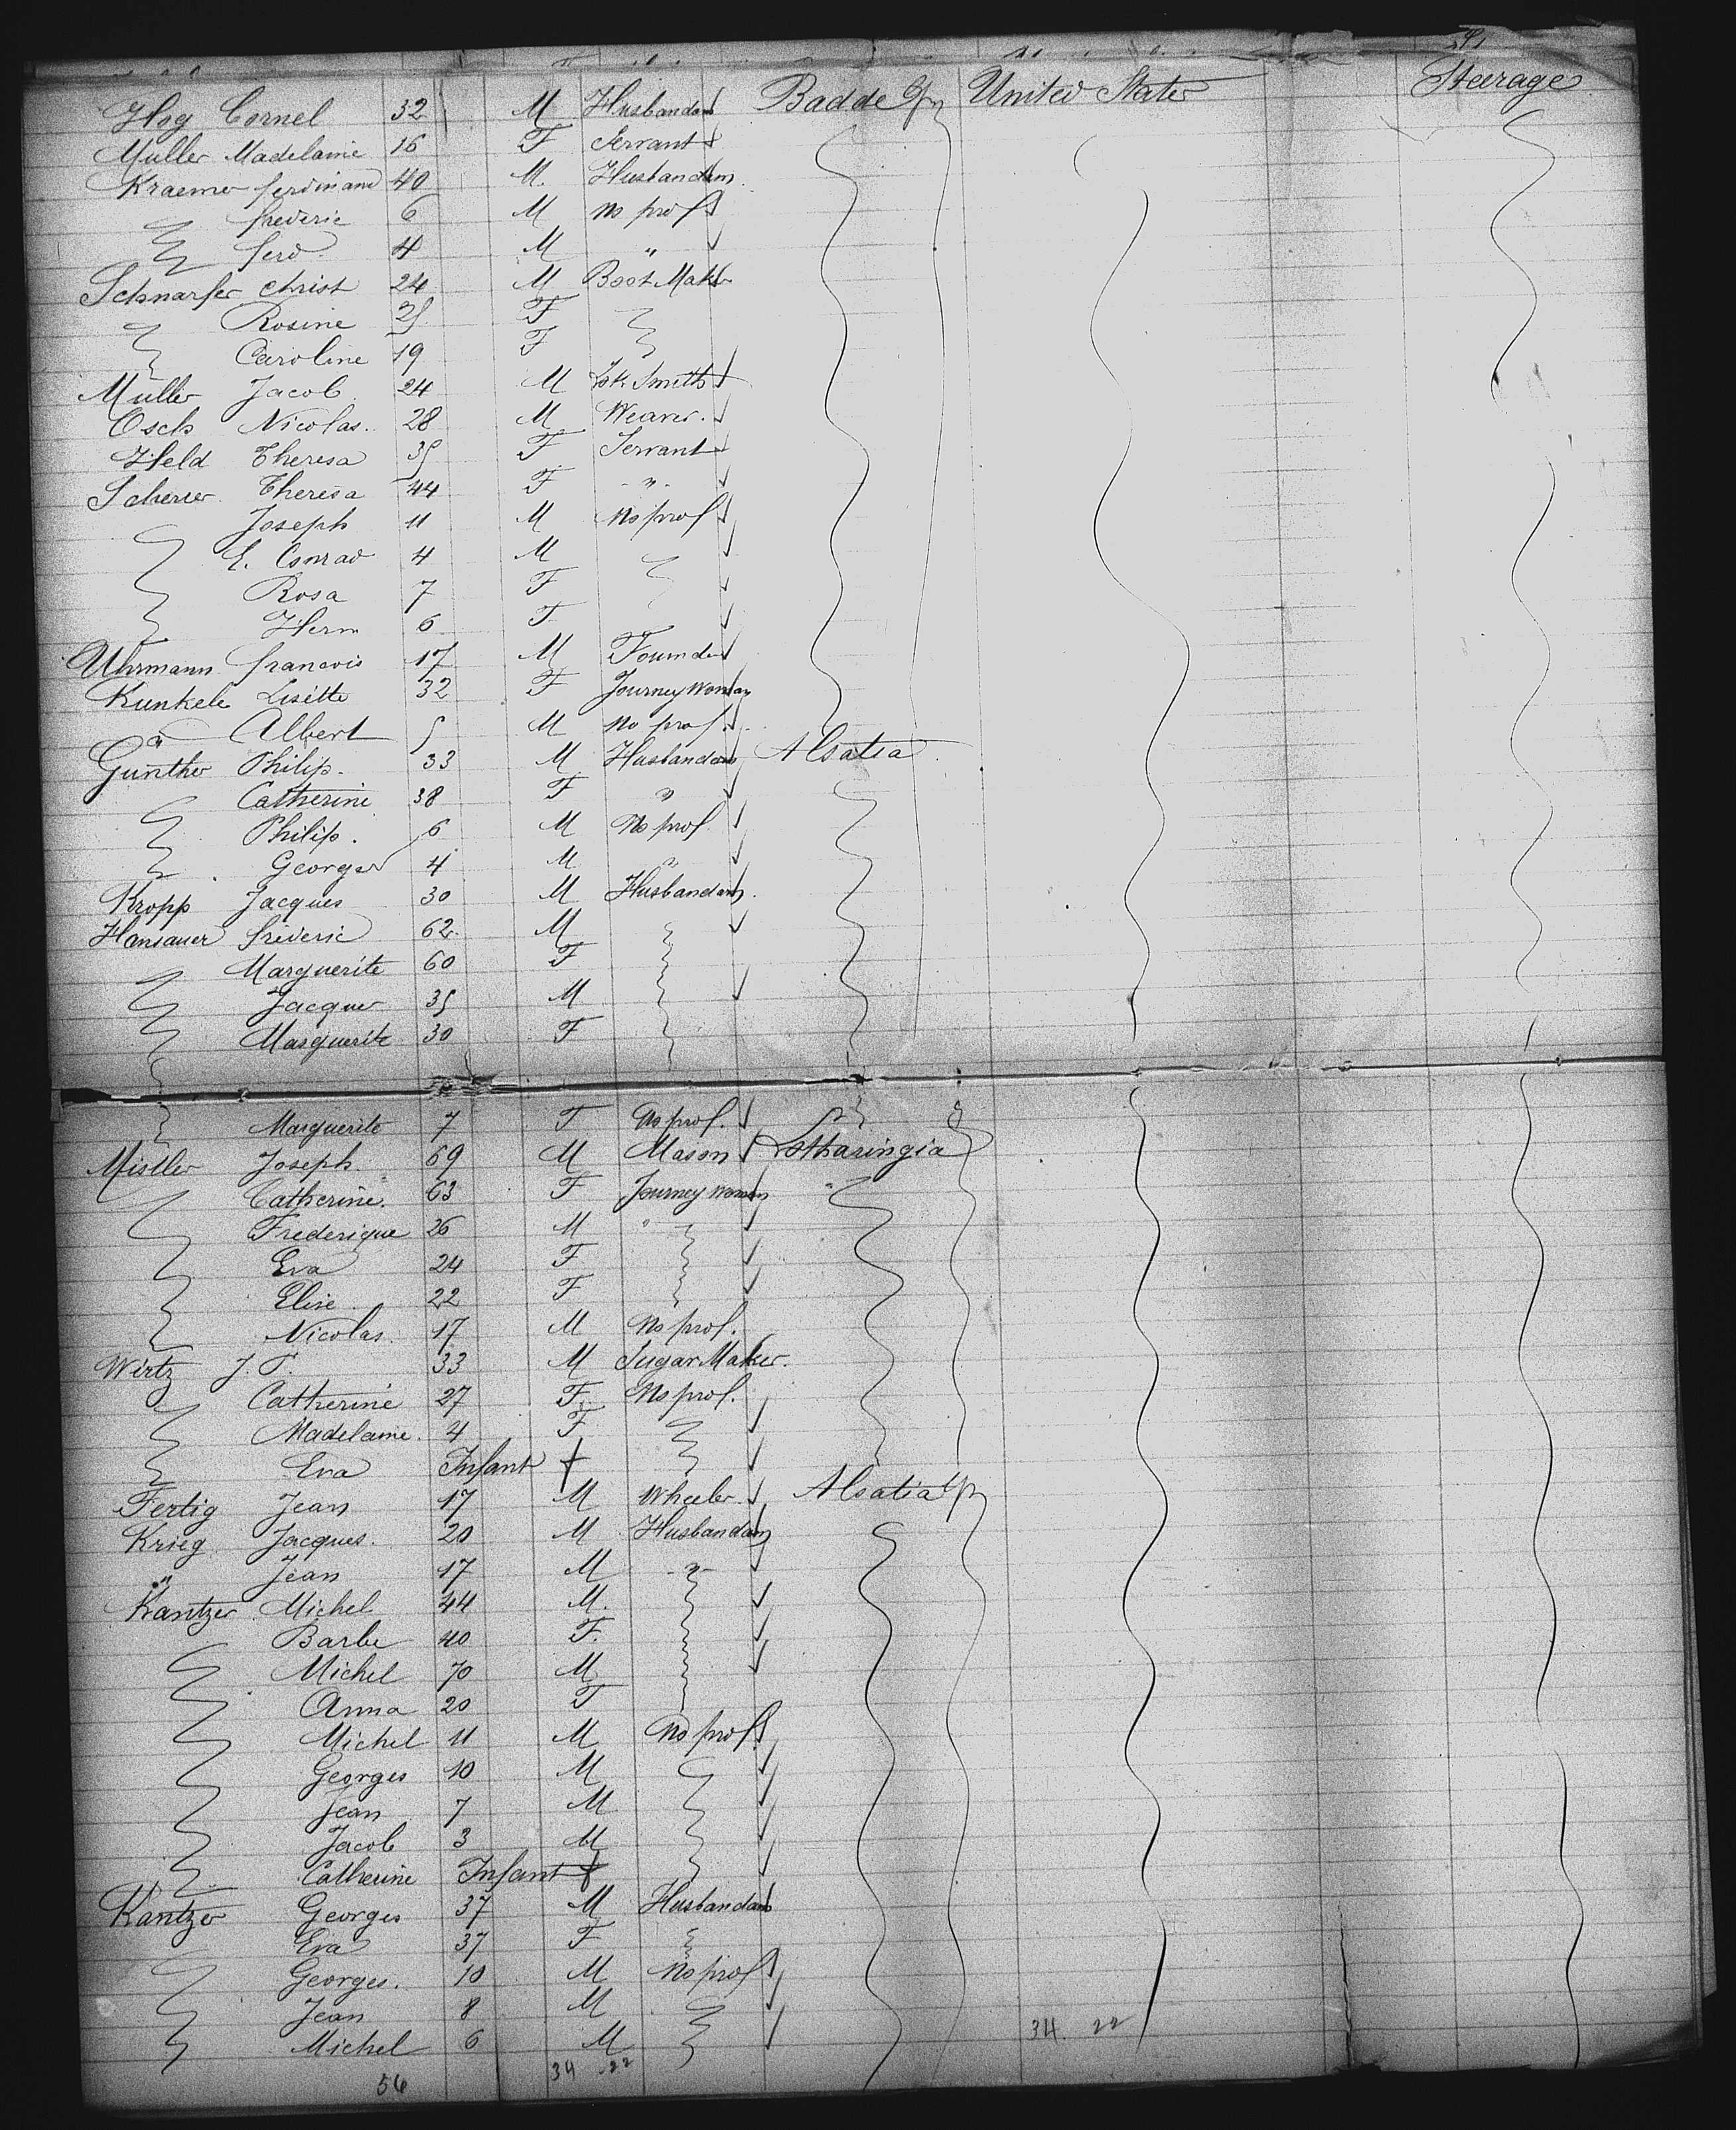 Hog Cornel 32 M Husbandm Badde Gm United States Steerage
Muller Madelaine 16 F Servant
Kraemer ferdinand 40 M. Husbandm
frederic 6 M no prof
ferd 4 M "
Schnarfer christ 24 M Boot Maker
Rosine 25 F
Caroline 19 F
Muller Jacob 24 M Lok Smith
Osch Nicolas. 28 M Weaver.
Held Theresa 35 F Servant
Scherrer Theresa 44 F "
Joseph 11 M No prof
E. Conrad 4 M
Rosa 7 F
Herm 6 F
Uhrmann francois 17 M Founder
Kunkele Lisette 32 F Journey Woman
" Albert 5 M no prof.
Gunther Philip. 33 M Husbandm Alsatia
Catherine 38 F "
Philip. 6 M No prof
Georges 4 M "
Kropp Jacques 30 M Husbandm.
Hansauer frederic 62. M
Marguerite 60 F
Jacques 35 M
Marguerite 30 F
Marguerite 7 F No prof.
Mistler Joseph 69 M Mason Lotharingia
Catherine. 63 F Journey Woman "
Frederique 26 M "
Eva 24 F
Elise 22 F
Nicolas. 17 M No prof.
Wirtz J. P. 33 M Sugar Maker.
Catherine 27 F No prof.
Madelaine. 4 F
Eva Infant
Fertig Jean 17 M Wheeler Alsatia
Krieg Jacques. 20 M Husbandm
" Jean 17 M "
Kantzer Michel 44 M.
Barbe 40 F.
Michel 70 M
Anna 20 F
Michel 11 M No prof
Georges 10 M
Jean 7 M
Jacob 3 M
Catherine Infant
Kantzer Georges 37 M Husbandm
Eva 37 F
Georges. 10 M No prof
Jean 8 M
Michel 6 M 34. 22
56 34 22